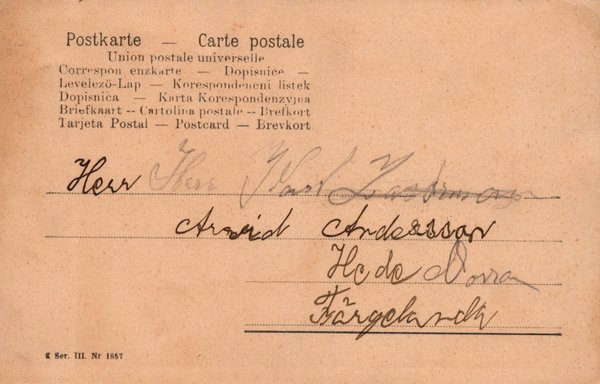 Postkarte — Carte postale
Union postale universelle
Correspondenzkarte — Dopisnice —
Levelező-Lap — Korespondencni listek
Dopisnica — Karta Korespondenzyjna
Briefkaart -- Cartolina postale -- Brefkort
Tarjeta Postal — Postcard — Brevkort
Herr Herr Karl
Arvid Andersson
Hede Norra
Färgelanda
K Ser. III. Nr 1857